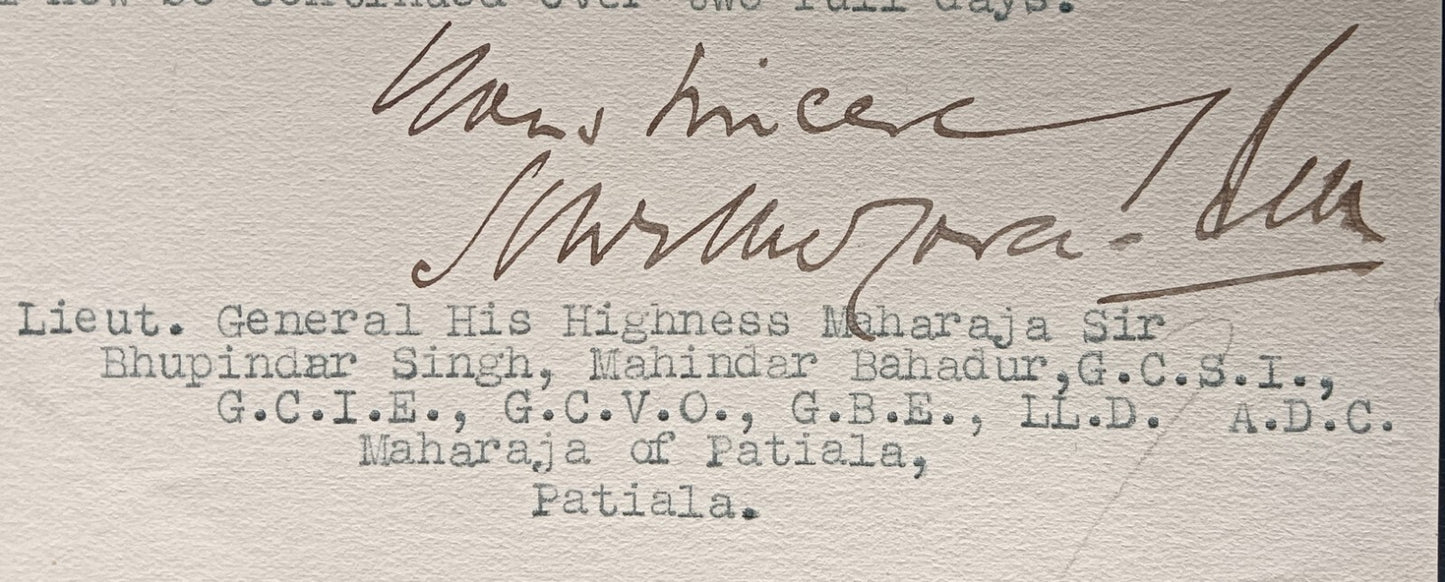 now be continued over two full days.
Yours sincerely
Lieut. General His Highness Maharaja Sir
Bhupindar Singh, Mahindar Bahadur,G.C.S.I.,
G.C.I.E., G.C.V.O., G.B.E., LL.D. A.D.C.
Maharaja of Patiala,
Patiala.